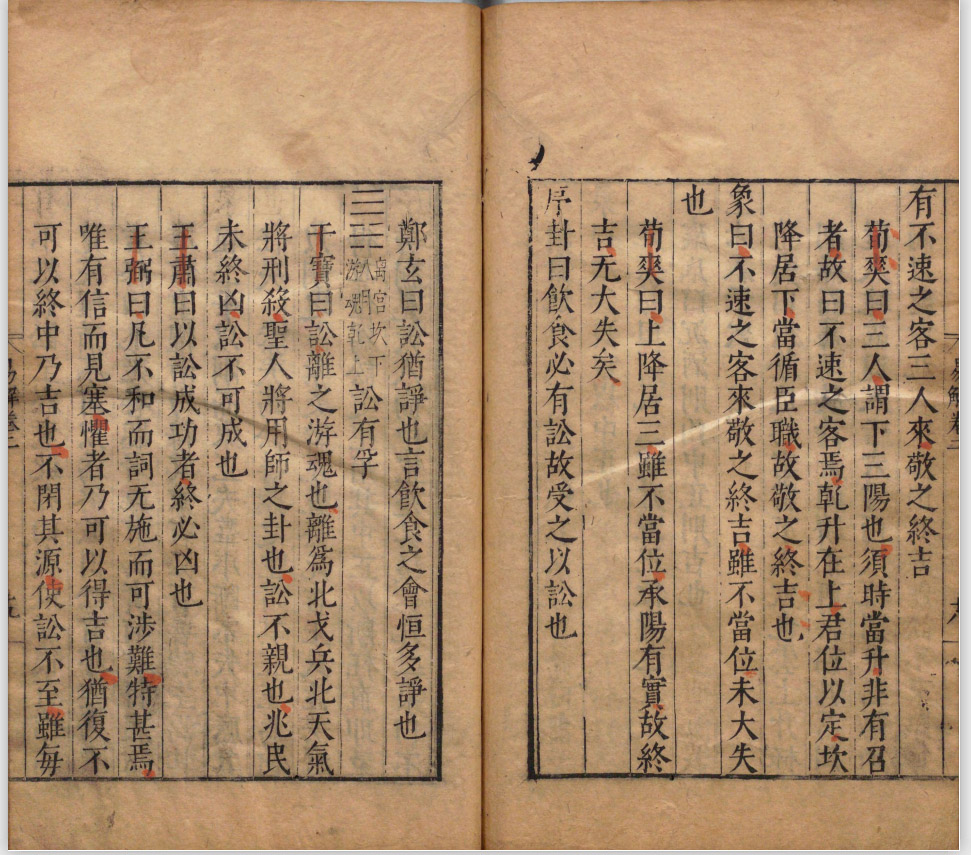 有不速之客三人來敬之終吉
荀爽曰三人謂下三陽也須時當升非有召
者故曰不速之客焉乾升在上君位以定坎
降居下當循臣職故敬之終吉也
象曰不速之客來敬之終吉雖不當位未大失
也
荀爽曰上降居三雖不當位承陽有實故終
吉无大失矣
序卦曰飲食必有訟故受之以訟也
鄭玄曰訟猶諍也言飲食之會恒多諍也
䷅離宮坎下游魂乾上訟有孚
干寶曰訟離之游魂也離爲此戈兵此天氣
將刑殺聖人將用師之卦也訟不親也兆民
未終凶訟不可成也
王肅曰以訟成功者終必凶也
王弼曰凡不和而詞无施而可涉難特甚焉
唯有信而見塞懼者乃可以得吉也猶復不
可以終中乃吉也不閉其源使訟不至雖每